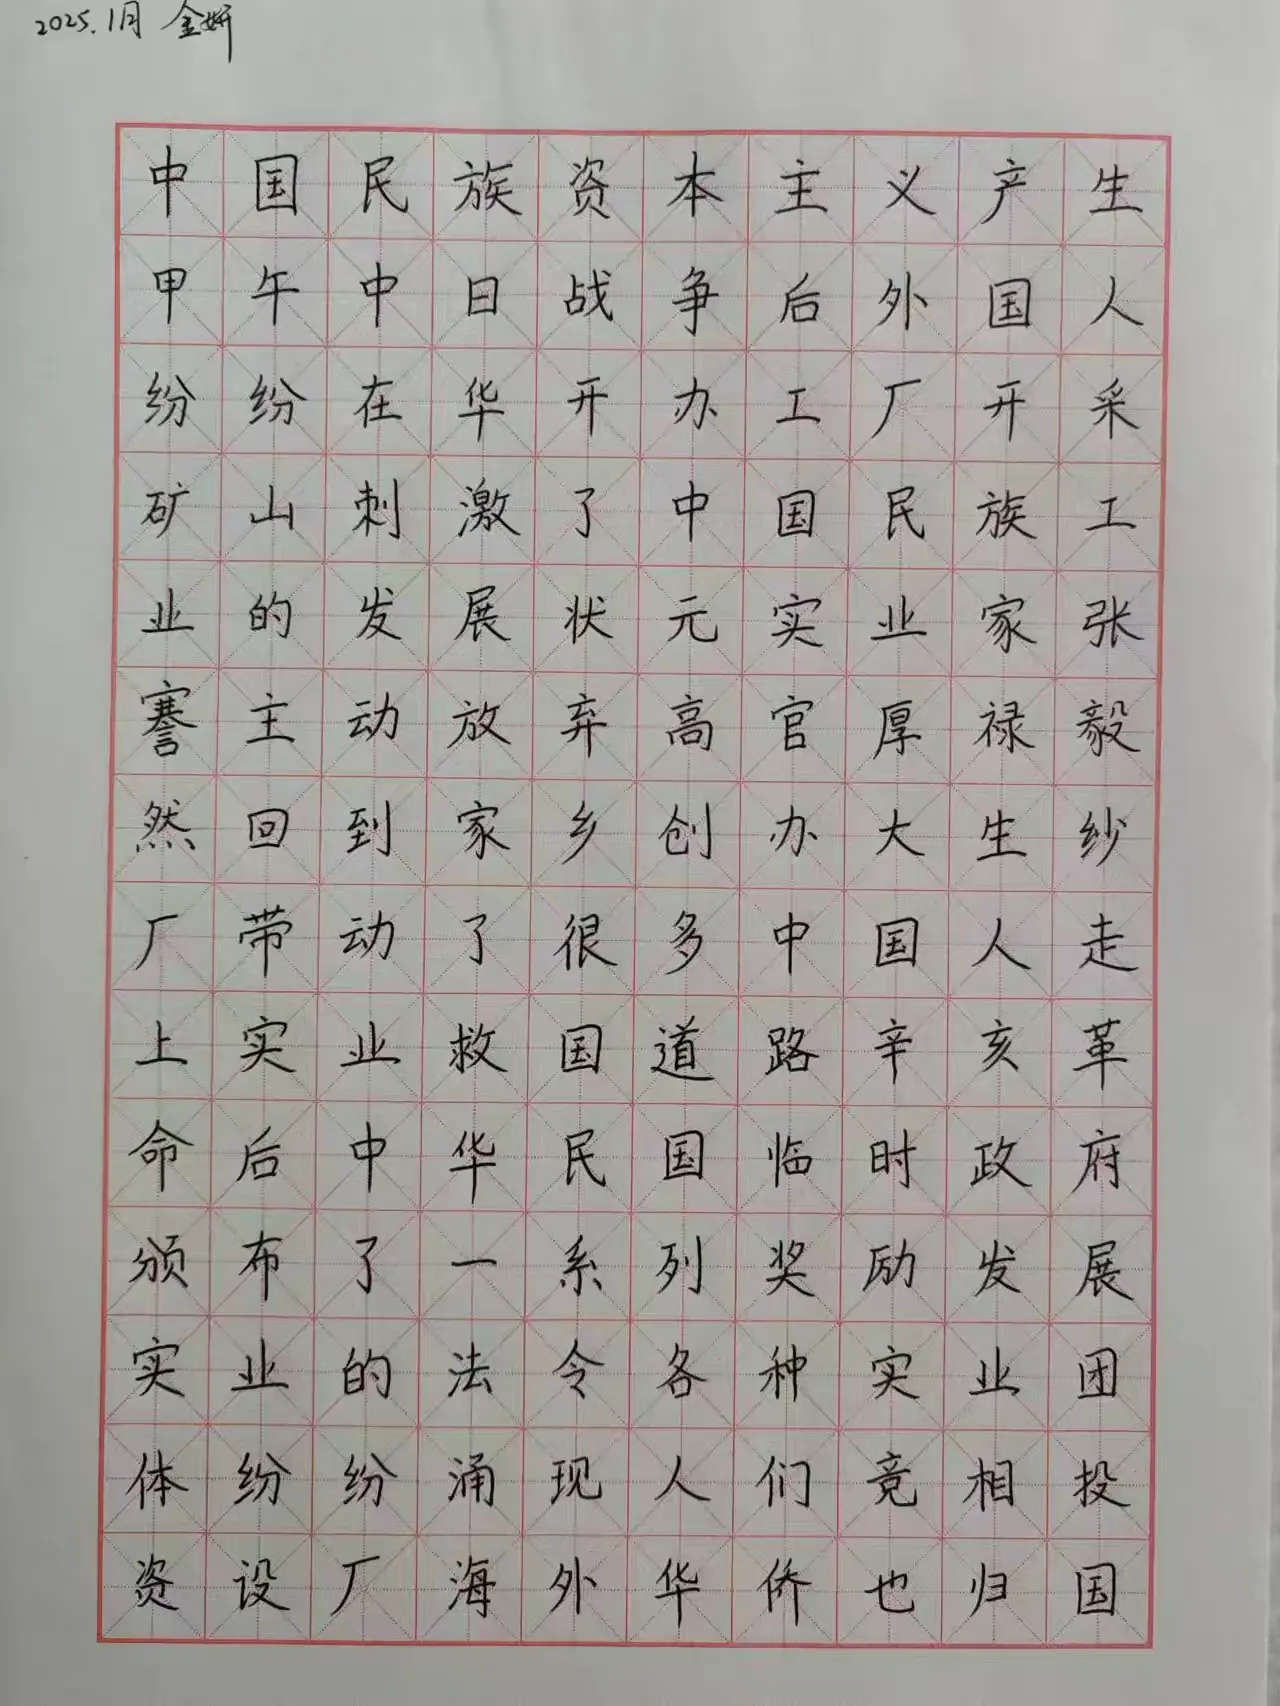 2025.1月 金妍
中国民族资本主义产生
甲午中日战争后外国人
纷纷在华开办工厂开采
矿山刺激了中国民族工
业的发展状元实业家张
謇主动放弃高官厚禄毅
然回到家乡创办大生纱
厂带动了很多中国人走
上实业救国道路辛亥革
命后中华民国临时政府
颁布了一系列奖励发展
实业的法令各种实业团
体纷纷涌现人们竟相投
资设厂海外华侨也归国